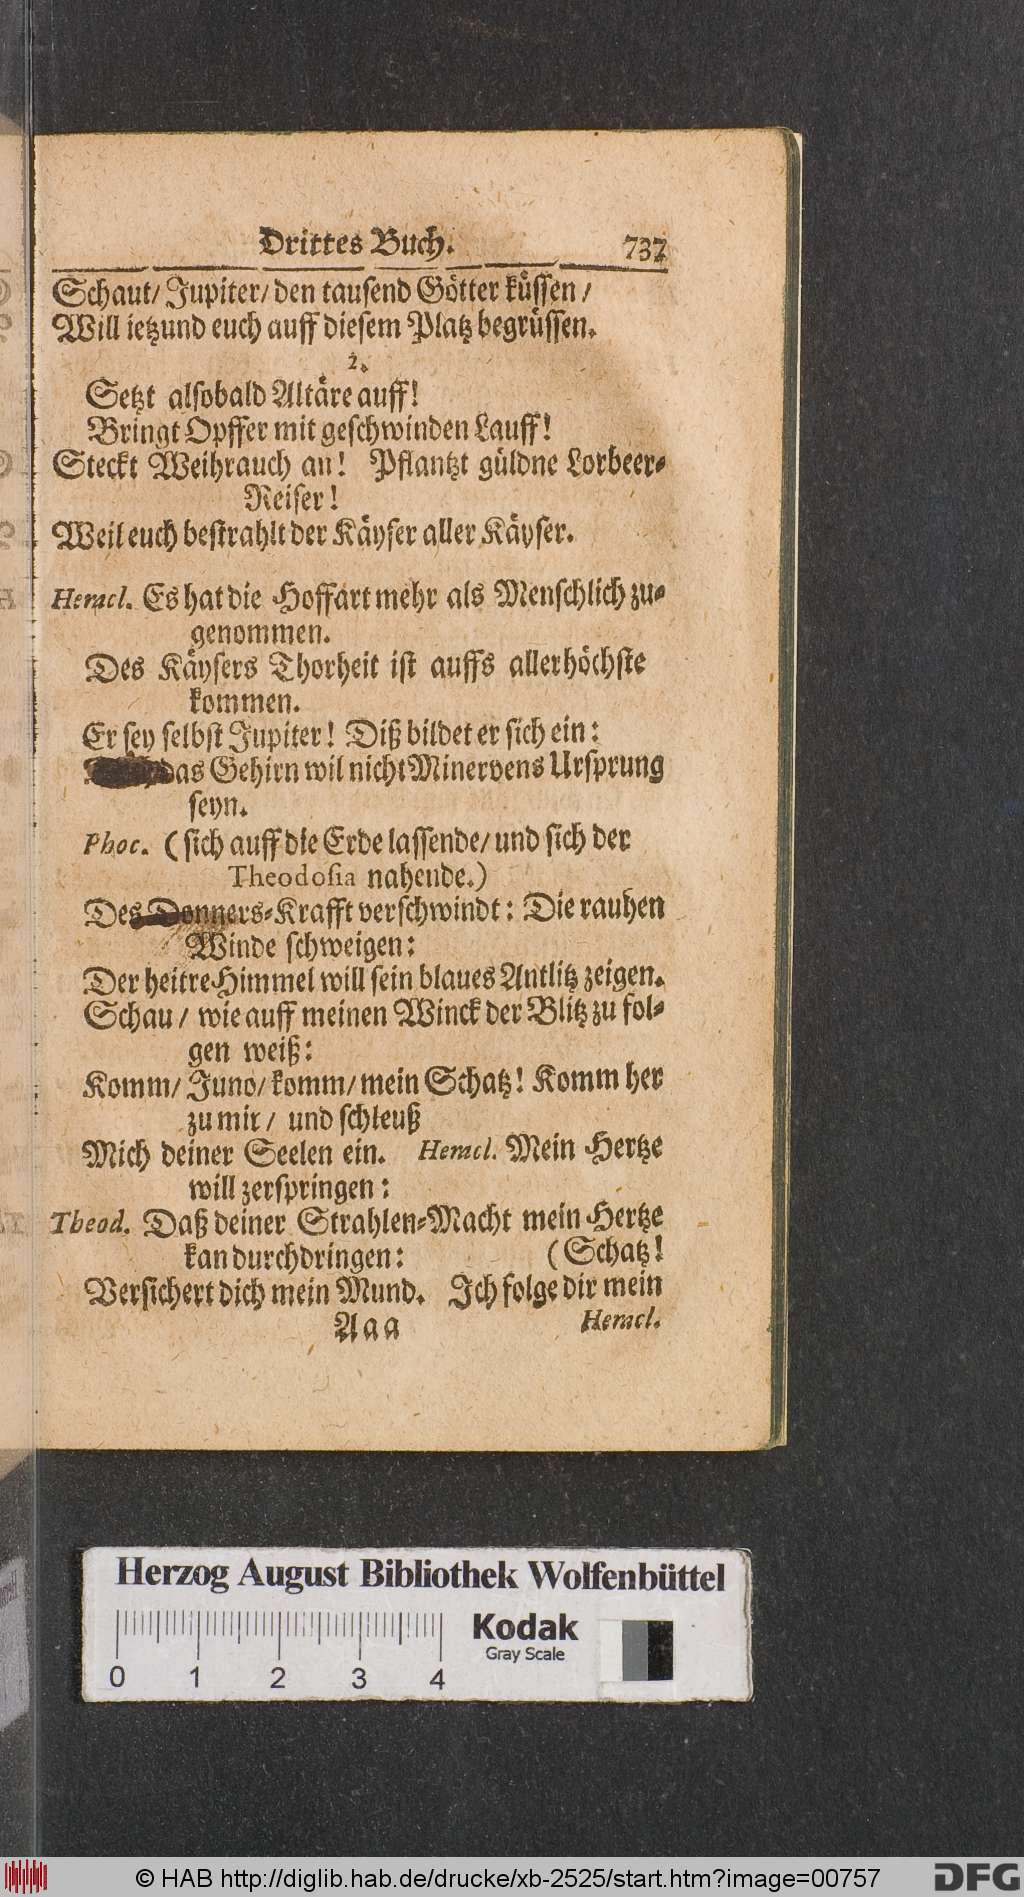 Drittes Buch. 737
Schaut/ Jupiter/ den tausend Götter küssen /
Will ietzund euch auff diesem Platz begrüssen.
2.
Setzt alsobald Altäre auff!
Bringt Opffer mit geschwinden Lauff!
Steckt Weihrauch an! Pflantzt güldne Lorbeer-
Reiser!
Weil euch bestrahlt der Käyser aller Käyser.
Heracl. Es hat die Hoffart mehr als Menschlich zu-
genommen.
Des Käysers Thorheit ist auffs allerhöchste
kommen.
Er sey selbst Jupiter! Diß bildet er sich ein:
das Gehirn wil nicht Minervens Ursprung
seyn.
Phoc. (sich auff die Erde lassende/ und sich der
Theodosia nahende.)
Des Donners-Krafft verschwindt: Die rauhen
Winde schweigen:
Der heitre Himmel will sein blaues Antlitz zeigen.
Schau / wie auff meinen Winck der Blitz zu fol-
gen weiß:
Komm/ Juno/ komm/ mein Schatz! Komm her
zu mir / und schleuß
Mich deiner Seelen ein. Heracl. Mein Hertze
will zerspringen:
Theod. Daß deiner Strahlen-Macht mein Hertze
kan durchdringen: (Schatz!
Versichert dich mein Mund. Ich folge dir mein
Aaa Heracl.
Herzog August Bibliothek Wolfenbüttel
Kodak
Gray Scale
0 1 2 3 4
© HAB http://diglib.hab.de/drucke/xb-2525/start.htm?image=00757
DFG